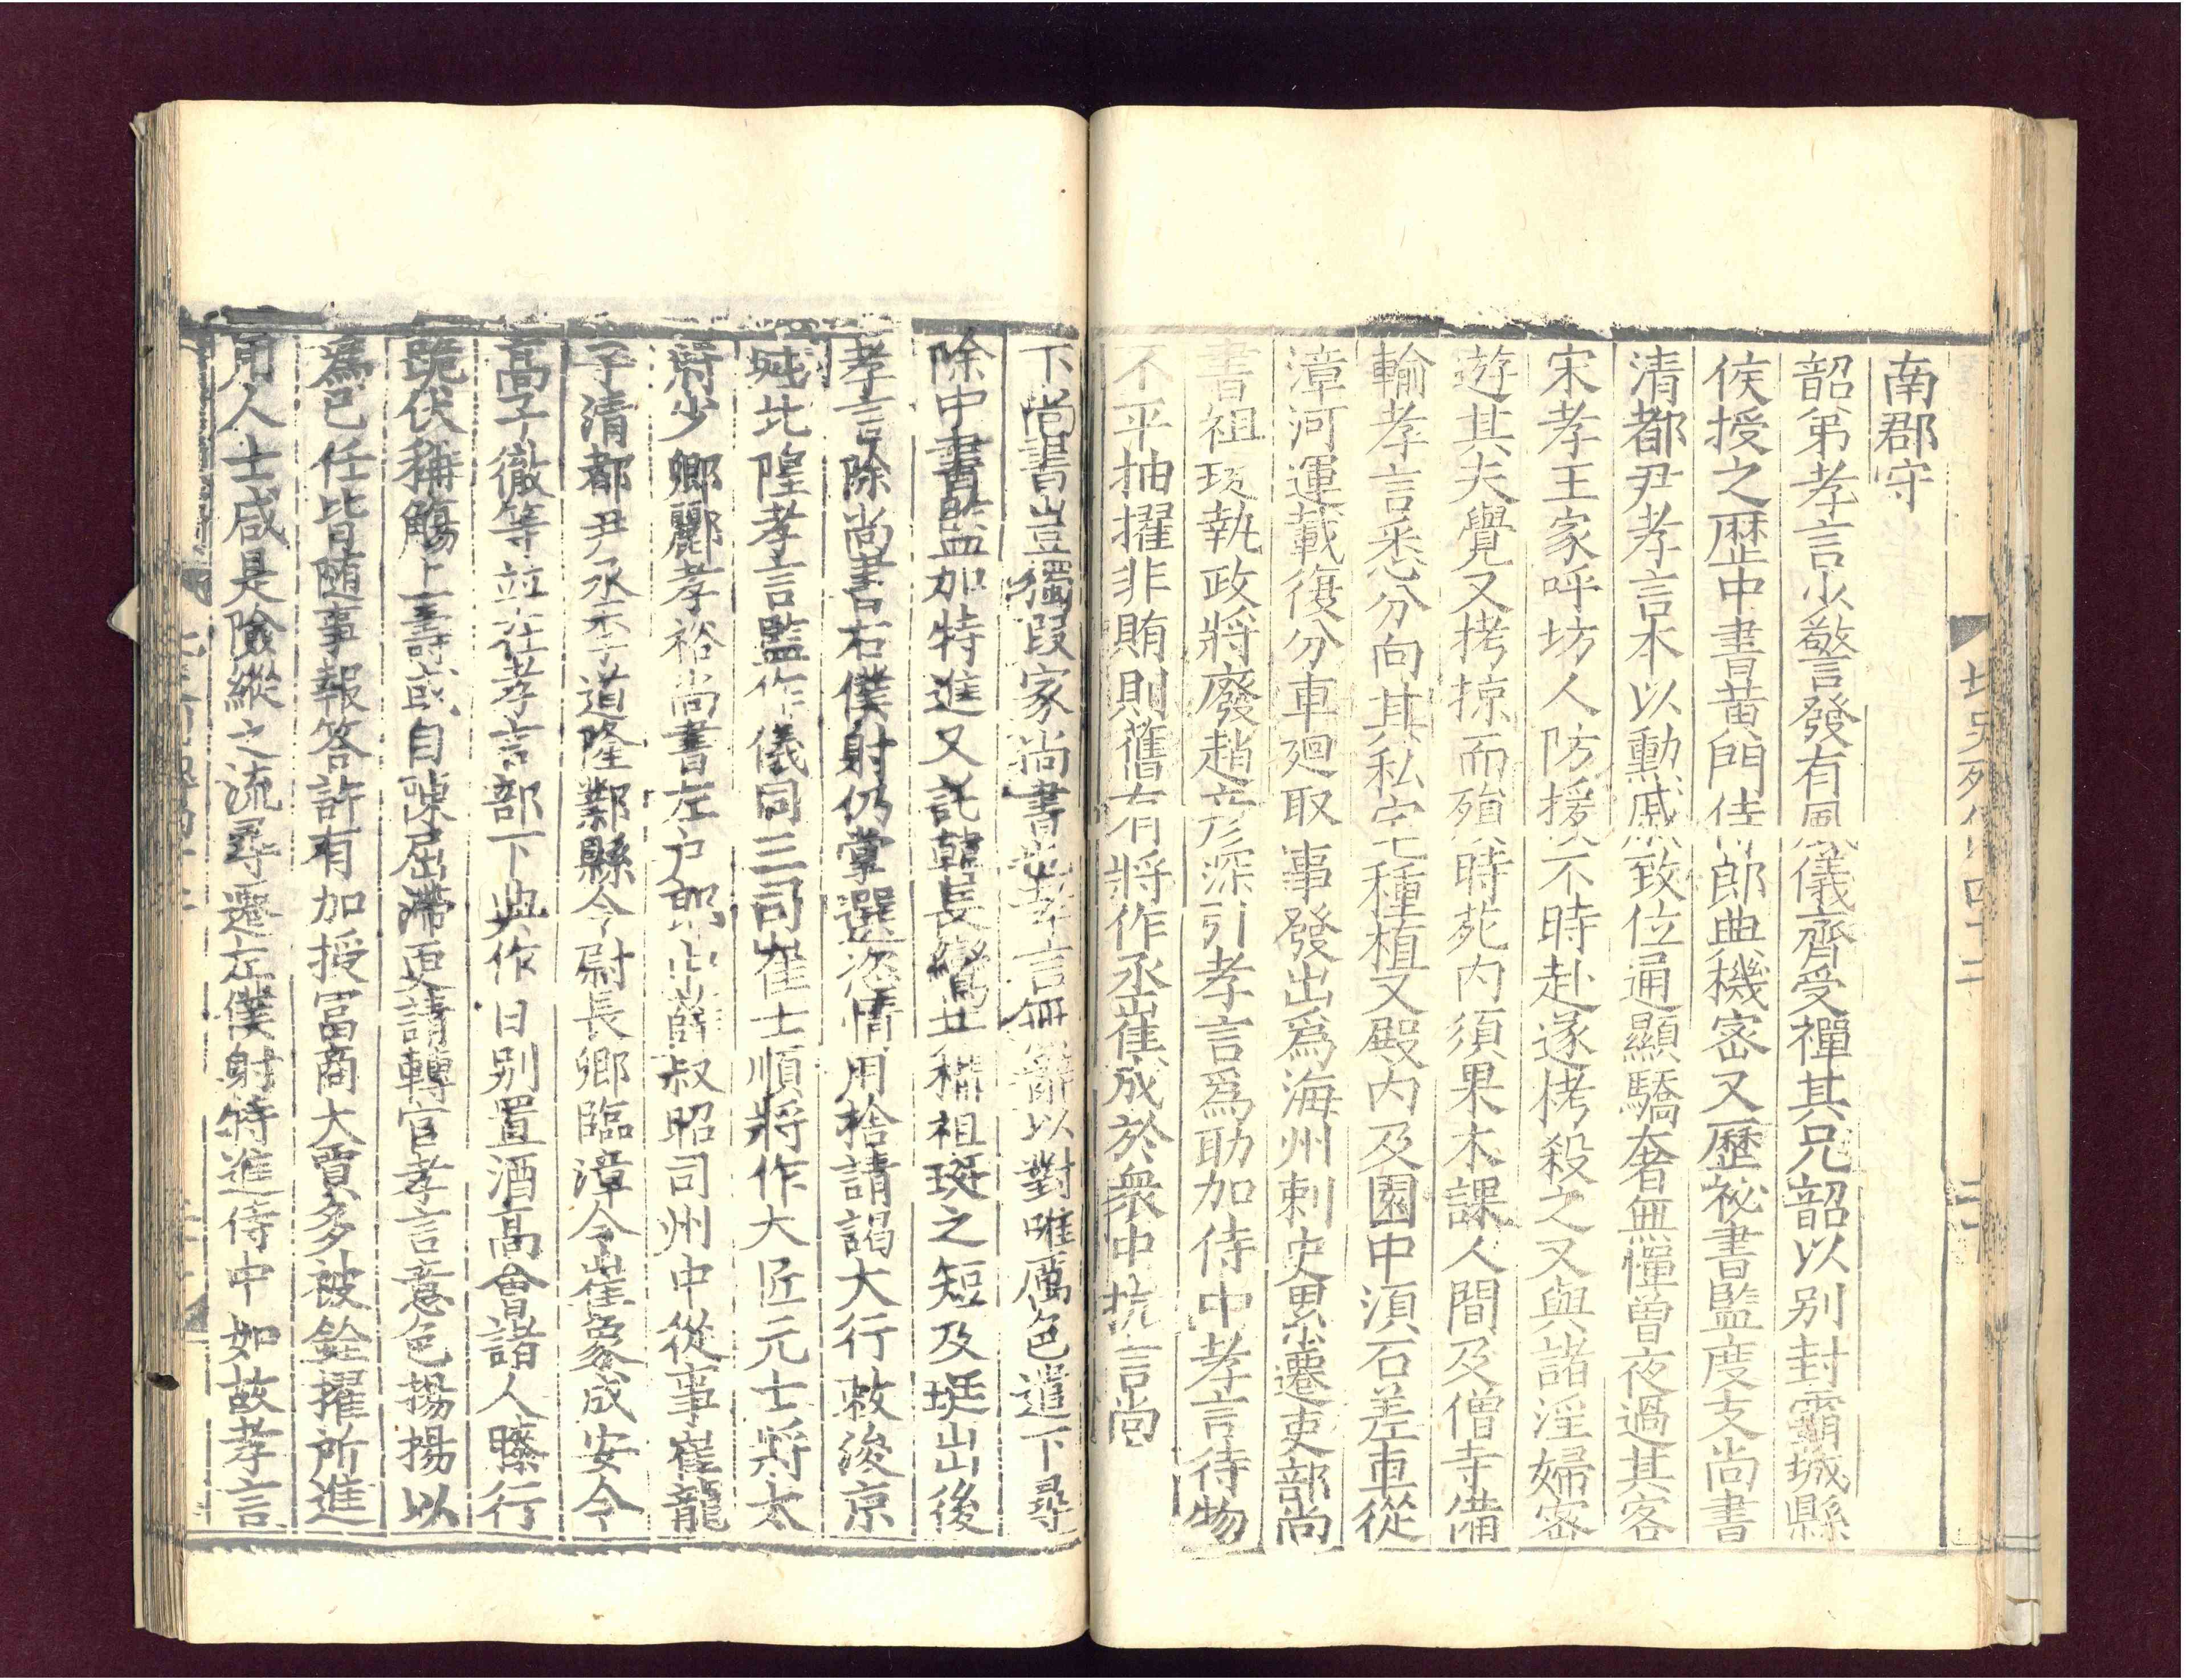 南郡守
韶弟孝言少警發有風儀齊受禪其兄韶以別封霸城縣
侯授之歷中書黃門侍郎典機密又歷祕書監度支尚書
清都尹孝言本以勳戚致位通顯驕奢無憚曾夜過其客
宋孝王家呼坊人防援不時赴遂栲殺之又與諸淫婦密
遊其夫覺又拷掠而殞時苑內須果木課人間及僧寺備
輸孝言悉分向其私宅種植又殿內及園中湏石差車從
漳河運載復分車廻取事發出爲海州刺史累遷吏部尚
書祖珽執政將廢趙彥深引孝言爲助加侍中孝言待物
不平抽擢非賄則舊有將作丞崔成於衆中抗言尚
下尚書豈獨段家尚書也孝言無辭以對唯厲色遣下尋
除中書監加特進又託韓長鸞共構祖珽之短及珽出後
孝言除尚書右僕射仍掌選恣情用捨請謁大行敕浚京
城北隍孝言監作儀同三司崔士順將作大匠元士將太
府少卿酈孝裕尚書左戶郎中薛叔昭司州中從事崔龍
子清都尹丞李道隆鄴縣令尉長卿臨漳令崔象成安令
高子徹等並在孝言部下典作日別置酒高會諸人膝行
跪伏稱觴上壽或自陳屈滯更請轉官孝言意色揚揚以
爲己任皆隨事報答許有加授富商大賈多被銓擢所進
用人士咸是險縱之流尋遷左僕射特進侍中如故孝言
北史列傳四十二
二